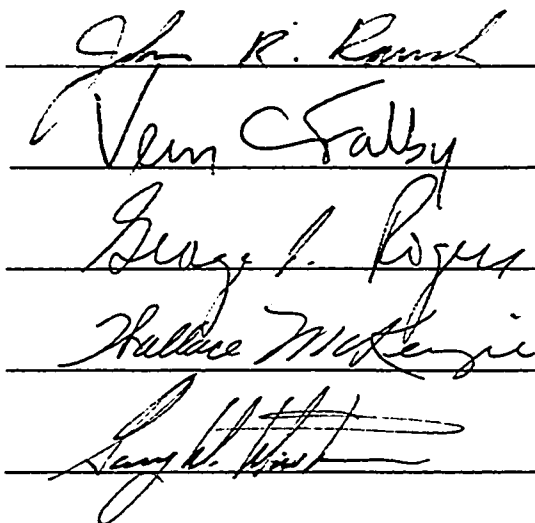 John R. Raush
Vern C Falby
George L. Rogers
Wallace McKenzie
Gary W.